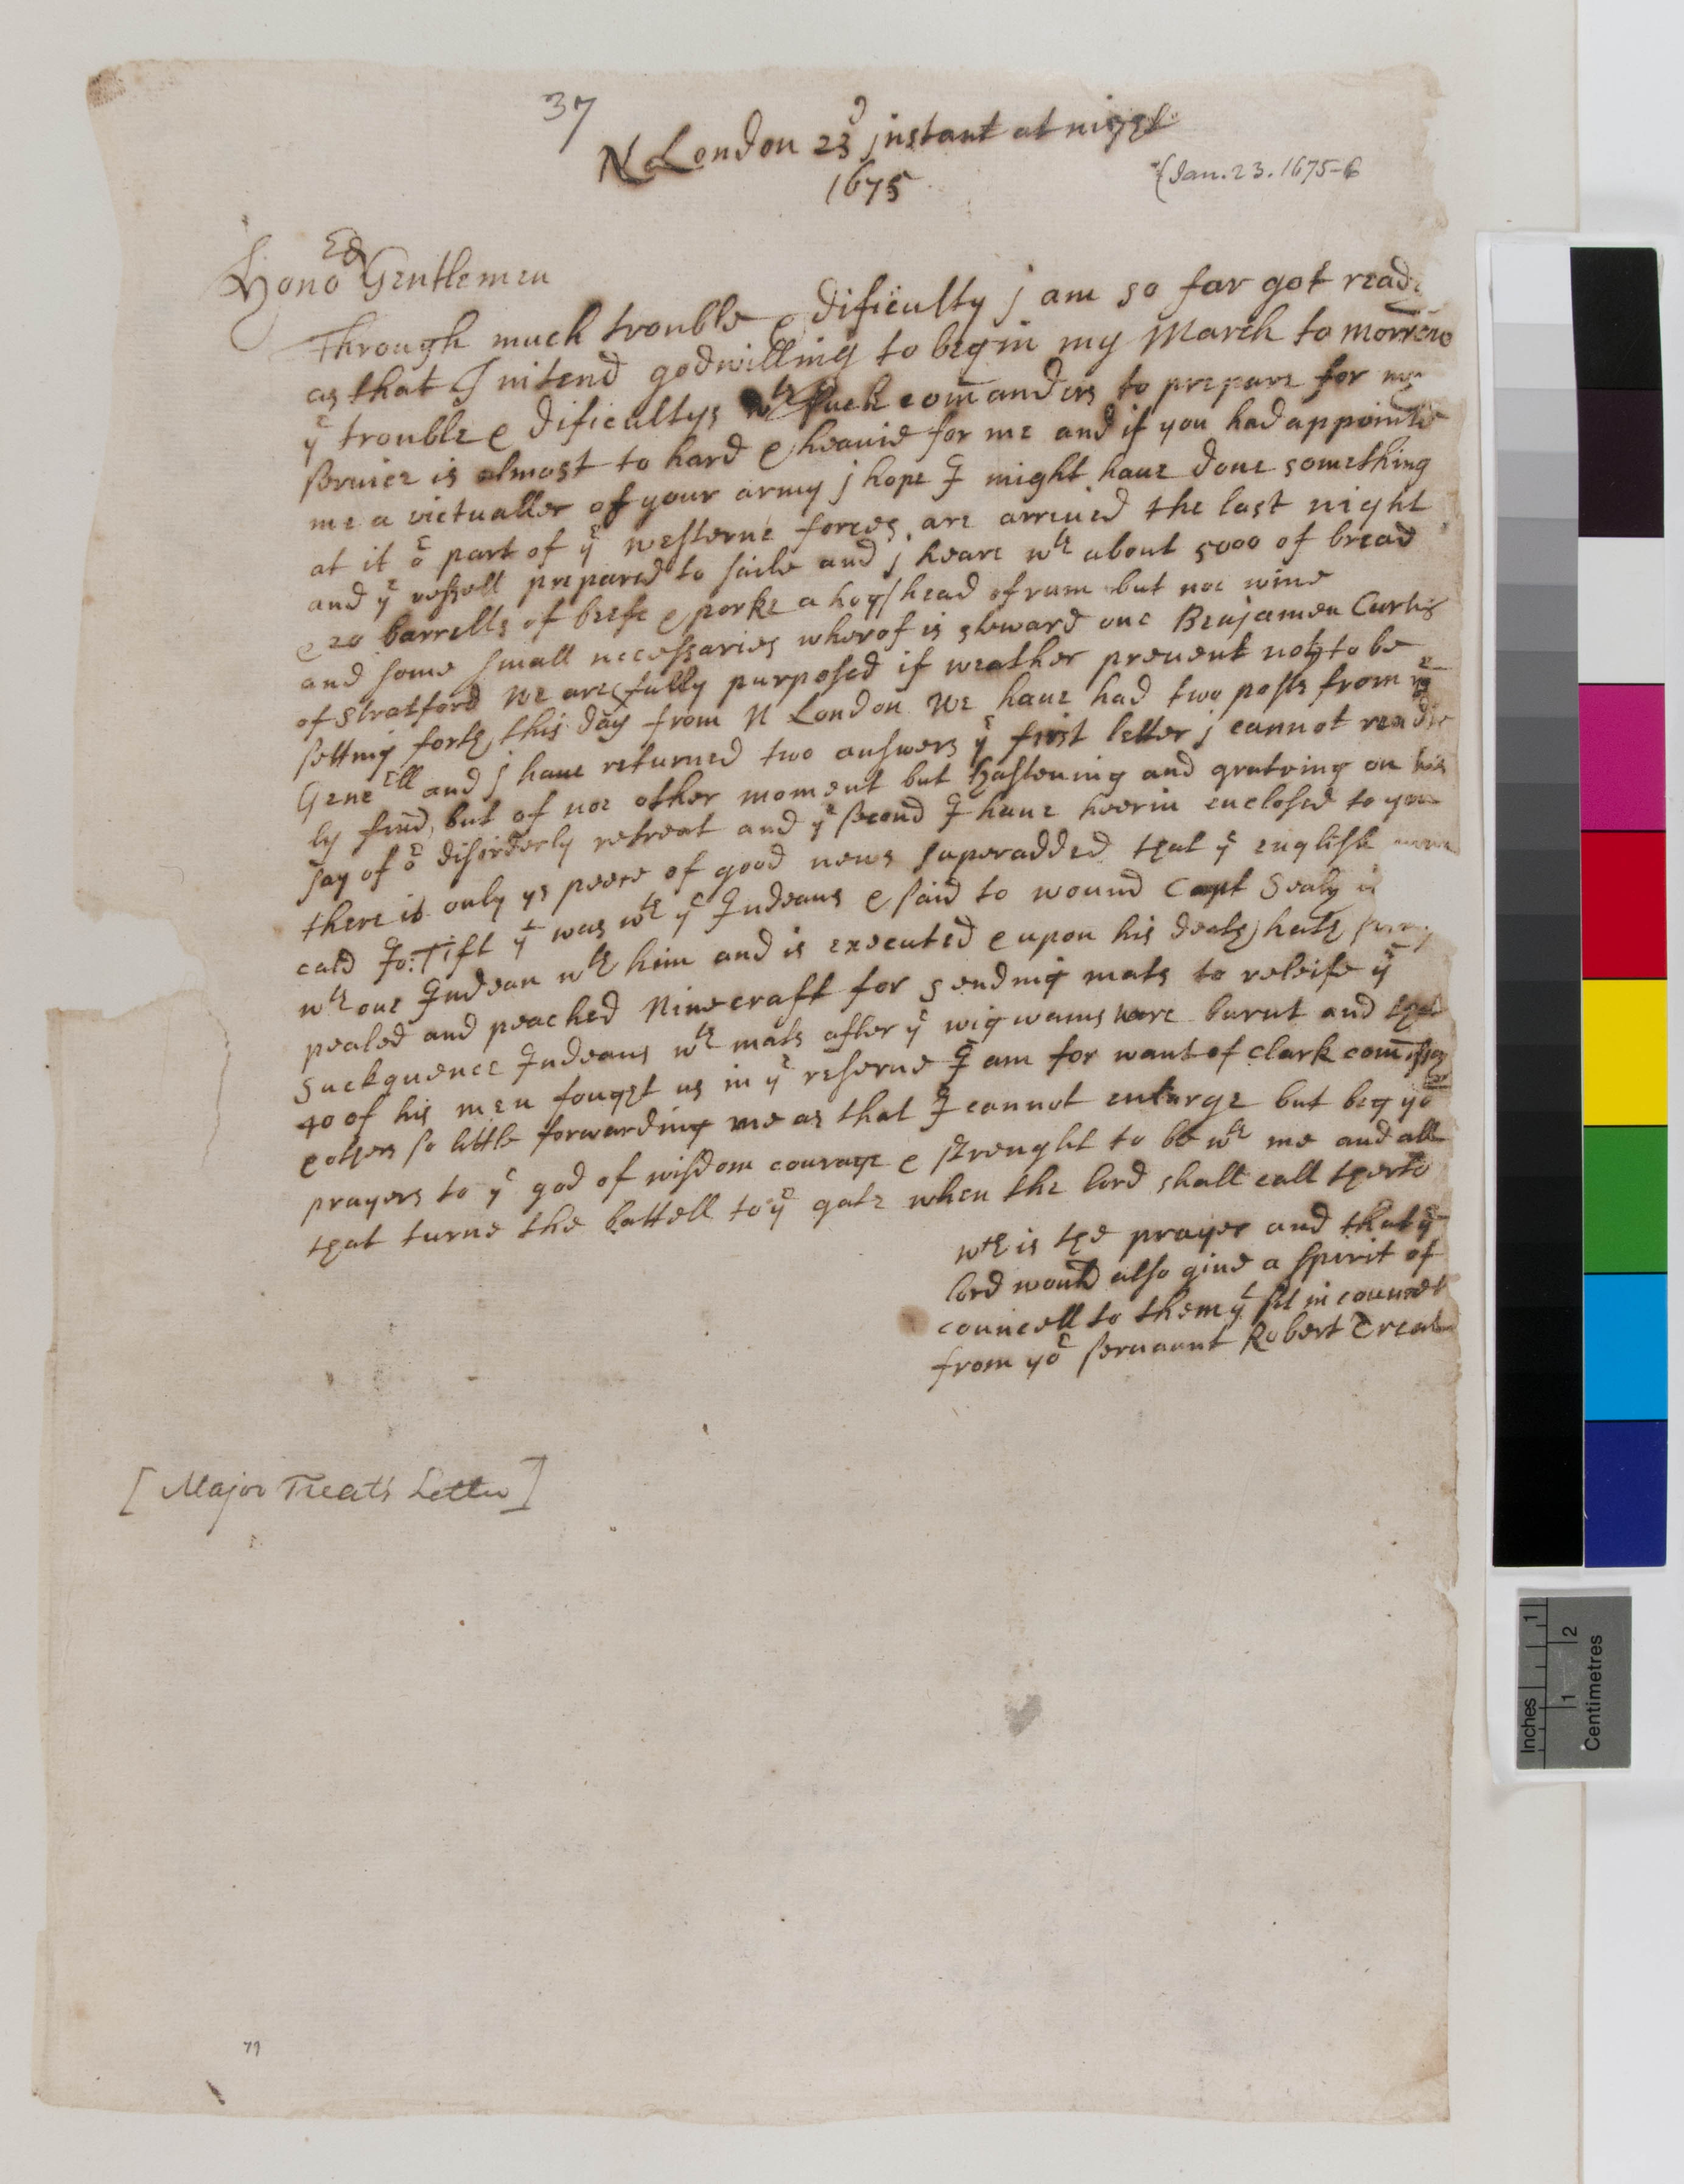 37
N London 23d jnstant at night
1675
(Jan. 23. 1675-6
Honoed Gentlemen
Through much trouble & dificulty j am so far got ready
as that I intend godwilling to begin my March to morrow
ye trouble & dificultys wth such comanders to prepare for my
seruice is almost to hard & heauie for me and if you had appointed
me a victualler of your army j hope I might haue done something
at it or part of ye westerne forces are arriued the last night
and ye vessell prepared to saile and j heare wth about 5000 of bread
& 20 barrells of beefe & porke a hogshead of rum but noe wine
and some small necessaries wherof is steward one Benjamen Curtis
of Stratford we are fully purposed if weather preuent not to be
setting forth this day from N London We haue had two posts from ye
Generll and j haue returned two answers ye first letter j cannot readi
ly find, but of noe other moment but hastening and grateing on his
say of or disorderly retreat and ye second I haue heerin enclosed to you
there is only ys peece of good news superadded that ye english
cald Jo: Tift yt was wth ye Indeans & said to wound Capt Sealy is
wth one Indean wth him and is executed & upon his death hath
pealed and peached Ninecraft for sending mats to releife ye
Suckquence Indeans wth mats after ye wigwams ware burnt and that
40 of his men fought us in ye reserue I am for want of clark comissary
& others so little forwarding me as that I cannot enlarge but beg yor
prayers to ye god of wisdom courage & strenght to be wth me and all
that turne the battell to ye gate when the lord shall call therto
wth is the prayer and that ye
lord would also giue a spirit of
councell to them yt sit in councel
from yor seruaunt Robert Treat
[Major Treats Letter]
71
Inches
1
1
2
Centimetres